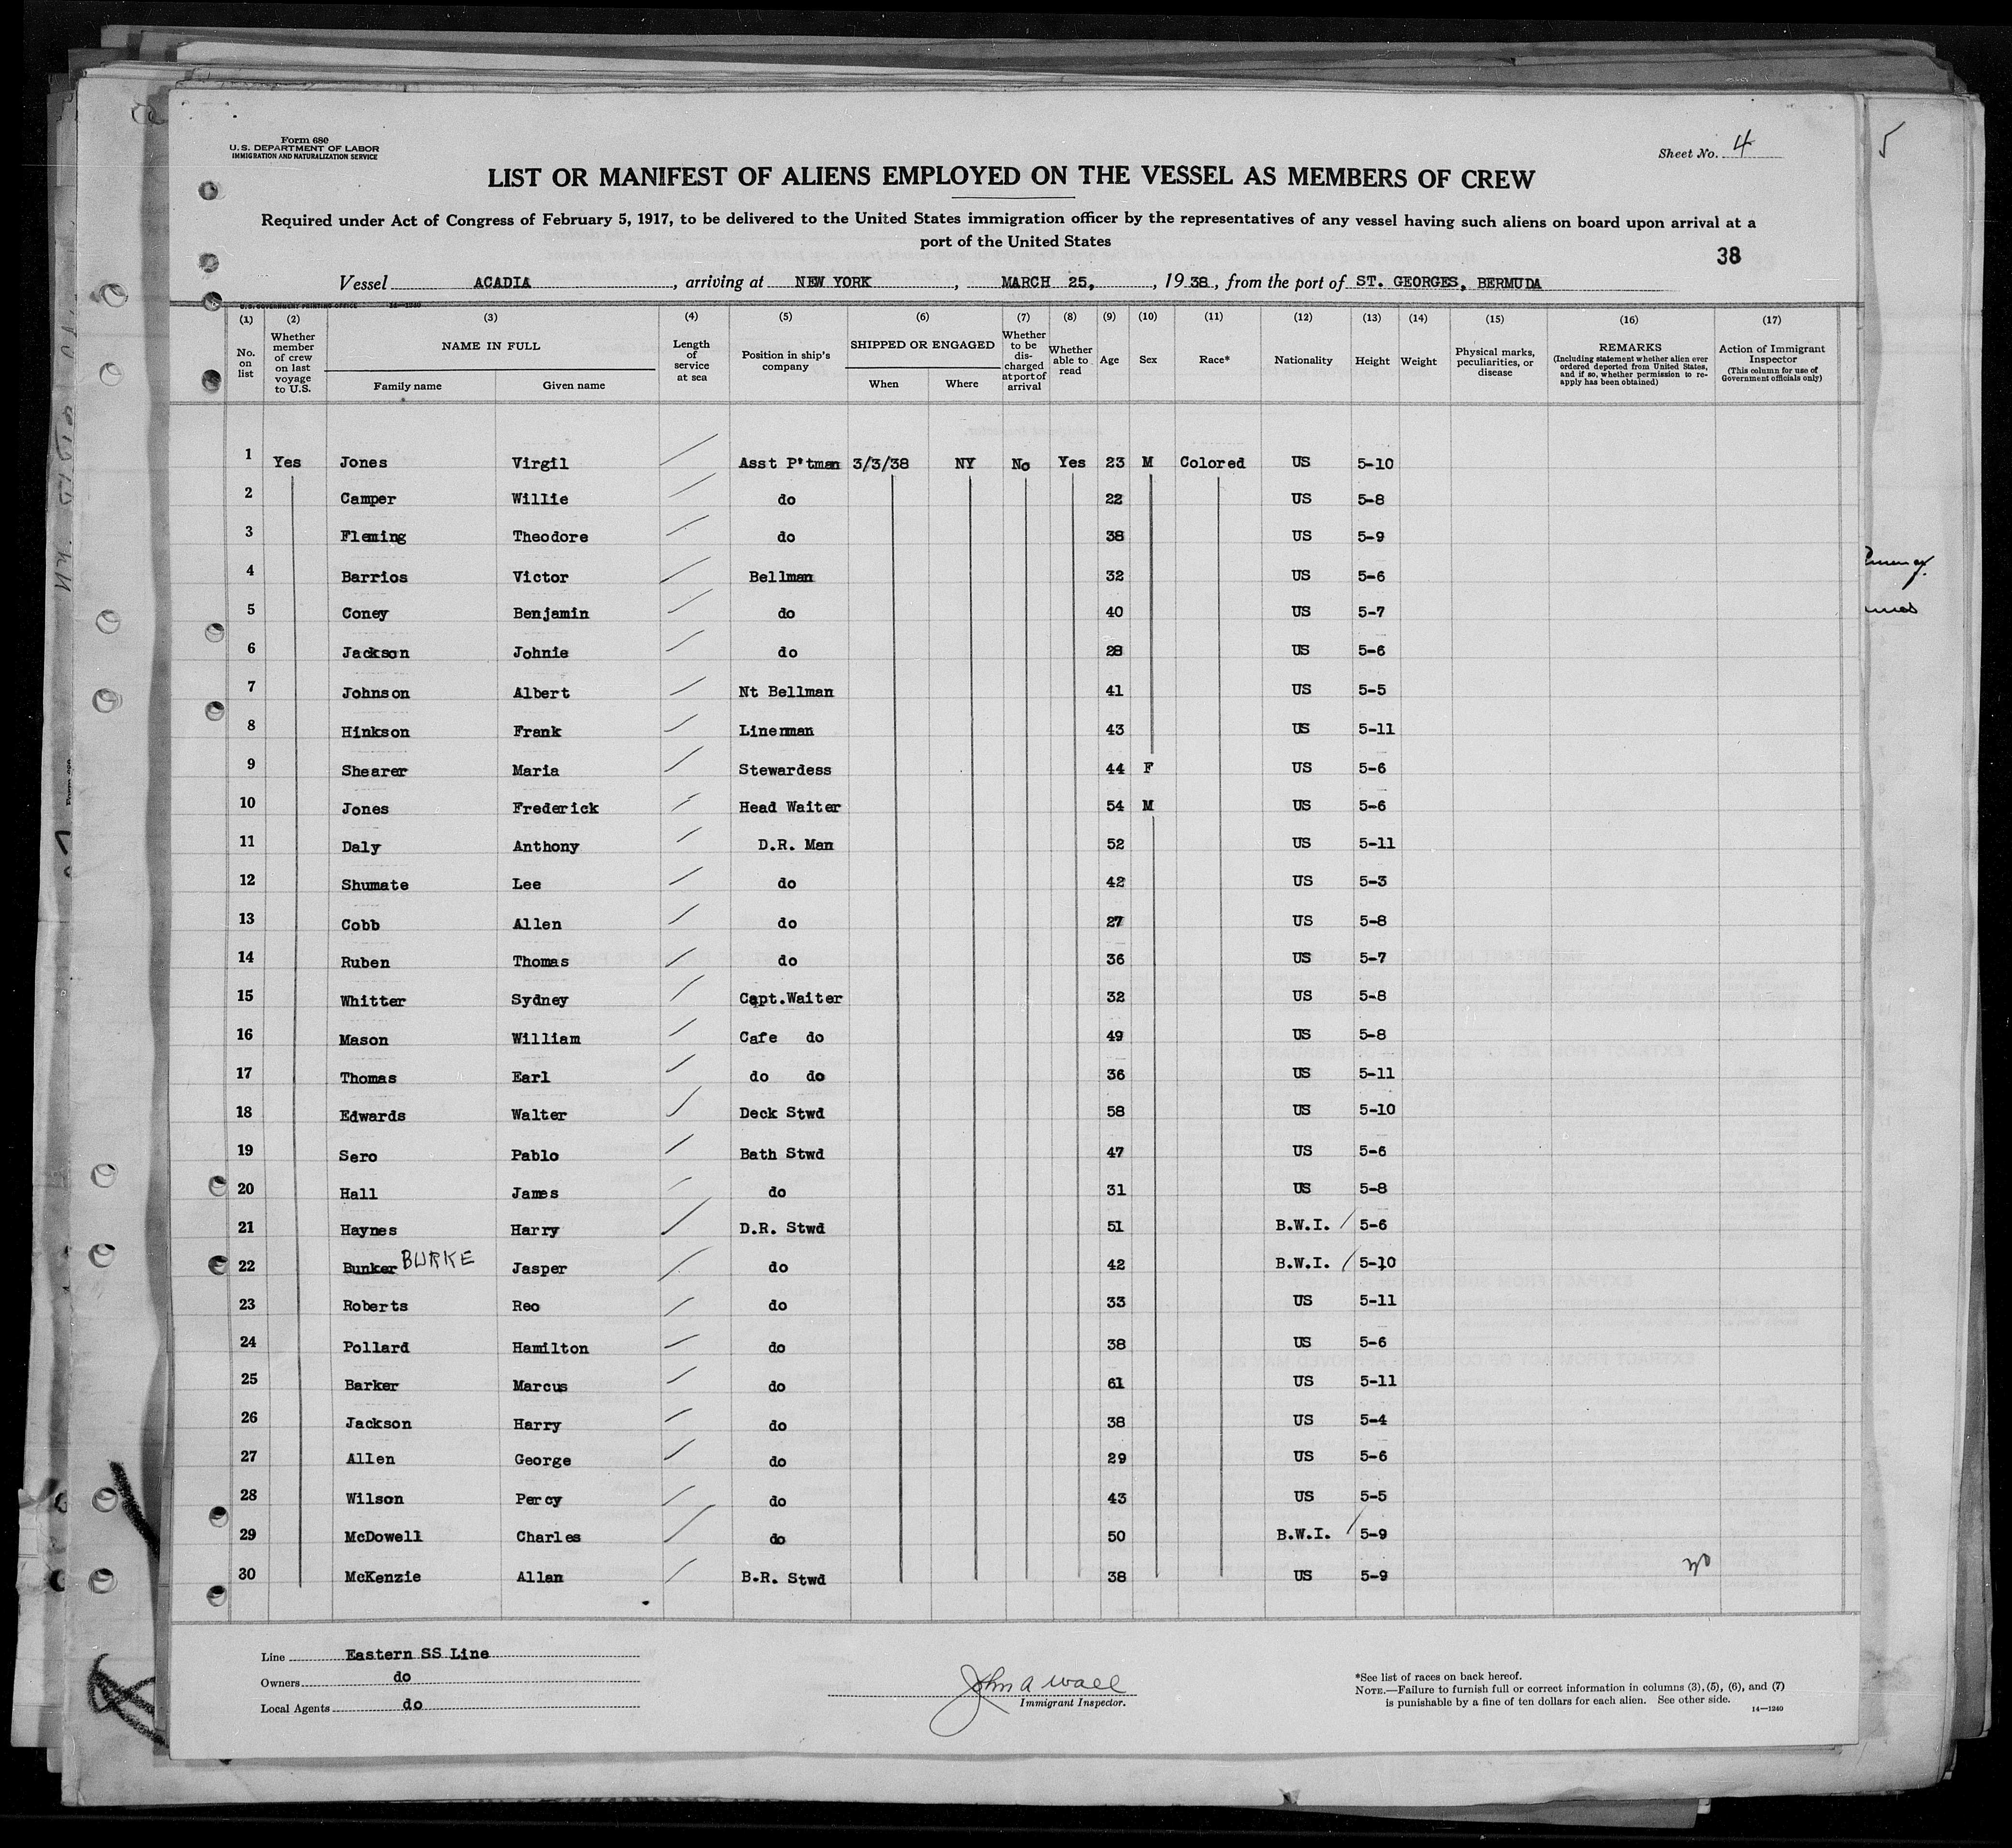 Form 680
U.S. DEPARTMENT OF LABOR
IMMIGRATION AND NATURALIZATION SERVICE
Sheet No. 4
5
LIST OR MANIFEST OF ALIENS EMPLOYED ON THE VESSEL AS MEMBERS OF CREW
Required under Act of Congress of February 5, 1917, to be delivered to the United States immigration officer by the representatives of any vessel having such aliens on board upon arrival at a
port of the United States
38
Vessel ACADIA, arriving at NEW YORK, MARCH 25,, 1938, from the port of ST. GEORGES, BERMUDA
U.S. GOVERNMENT PRINTING OFFICE 14—1240
(1) (2) (3) (4) (5) (6) (7) (8) (9) (10) (11) (12) (13) (14) (15) (16) (17)
No. on list
Whether member of crew on last voyage to U.S.
NAME IN FULL
Family name Given name
Length of service at sea
Position in ship's company
SHIPPED OR ENGAGED
When Where
Whether to be discharged at port of arrival
Whether able to read
Age
Sex
Race*
Nationality
Height
Weight
Physical marks, peculiarities, or disease
REMARKS
(Including statement whether alien ever ordered deported from United States, and if so, whether permission to re-apply has been obtained)
Action of Immigrant Inspector
(This column for use of Government officials only)
1 Yes Jones Virgil Asst P'tman 3/3/38 NY No Yes 23 M Colored US 5-10
2 Camper Willie do 22 US 5-8
3 Fleming Theodore do 38 US 5-9
4 Barrios Victor Bellman 32 US 5-6
5 Coney Benjamin do 40 US 5-7
6 Jackson Johnie do 28 US 5-6
7 Johnson Albert Nt Bellman 41 US 5-5
8 Hinkson Frank Linenman 43 US 5-11
9 Shearer Maria Stewardess 44 F US 5-6
10 Jones Frederick Head Waiter 54 M US 5-6
11 Daly Anthony D.R. Man 52 US 5-11
12 Shumate Lee do 42 US 5-3
13 Cobb Allen do 27 US 5-8
14 Ruben Thomas do 36 US 5-7
15 Whitter Sydney Capt.Waiter 32 US 5-8
16 Mason William Cafe do 49 US 5-8
17 Thomas Earl do do 36 US 5-11
18 Edwards Walter Deck Stwd 58 US 5-10
19 Sero Pablo Bath Stwd 47 US 5-6
20 Hall James do 31 US 5-8
21 Haynes Harry D.R. Stwd 51 B.W.I. 5-6
22 Bunker BURKE Jasper do 42 B.W.I. 5-10
23 Roberts Reo do 33 US 5-11
24 Pollard Hamilton do 38 US 5-6
25 Barker Marcus do 61 US 5-11
26 Jackson Harry do 38 US 5-4
27 Allen George do 29 US 5-6
28 Wilson Percy do 43 US 5-5
29 McDowell Charles do 50 B.W.I. 5-9
30 McKenzie Allan B.R. Stwd 38 US 5-9
Line Eastern SS Line
Owners do
Local Agents do
John A Wall
Immigrant Inspector.
*See list of races on back hereof.
NOTE.—Failure to furnish full or correct information in columns (3), (5), (6), and (7)
is punishable by a fine of ten dollars for each alien. See other side.
14—1240